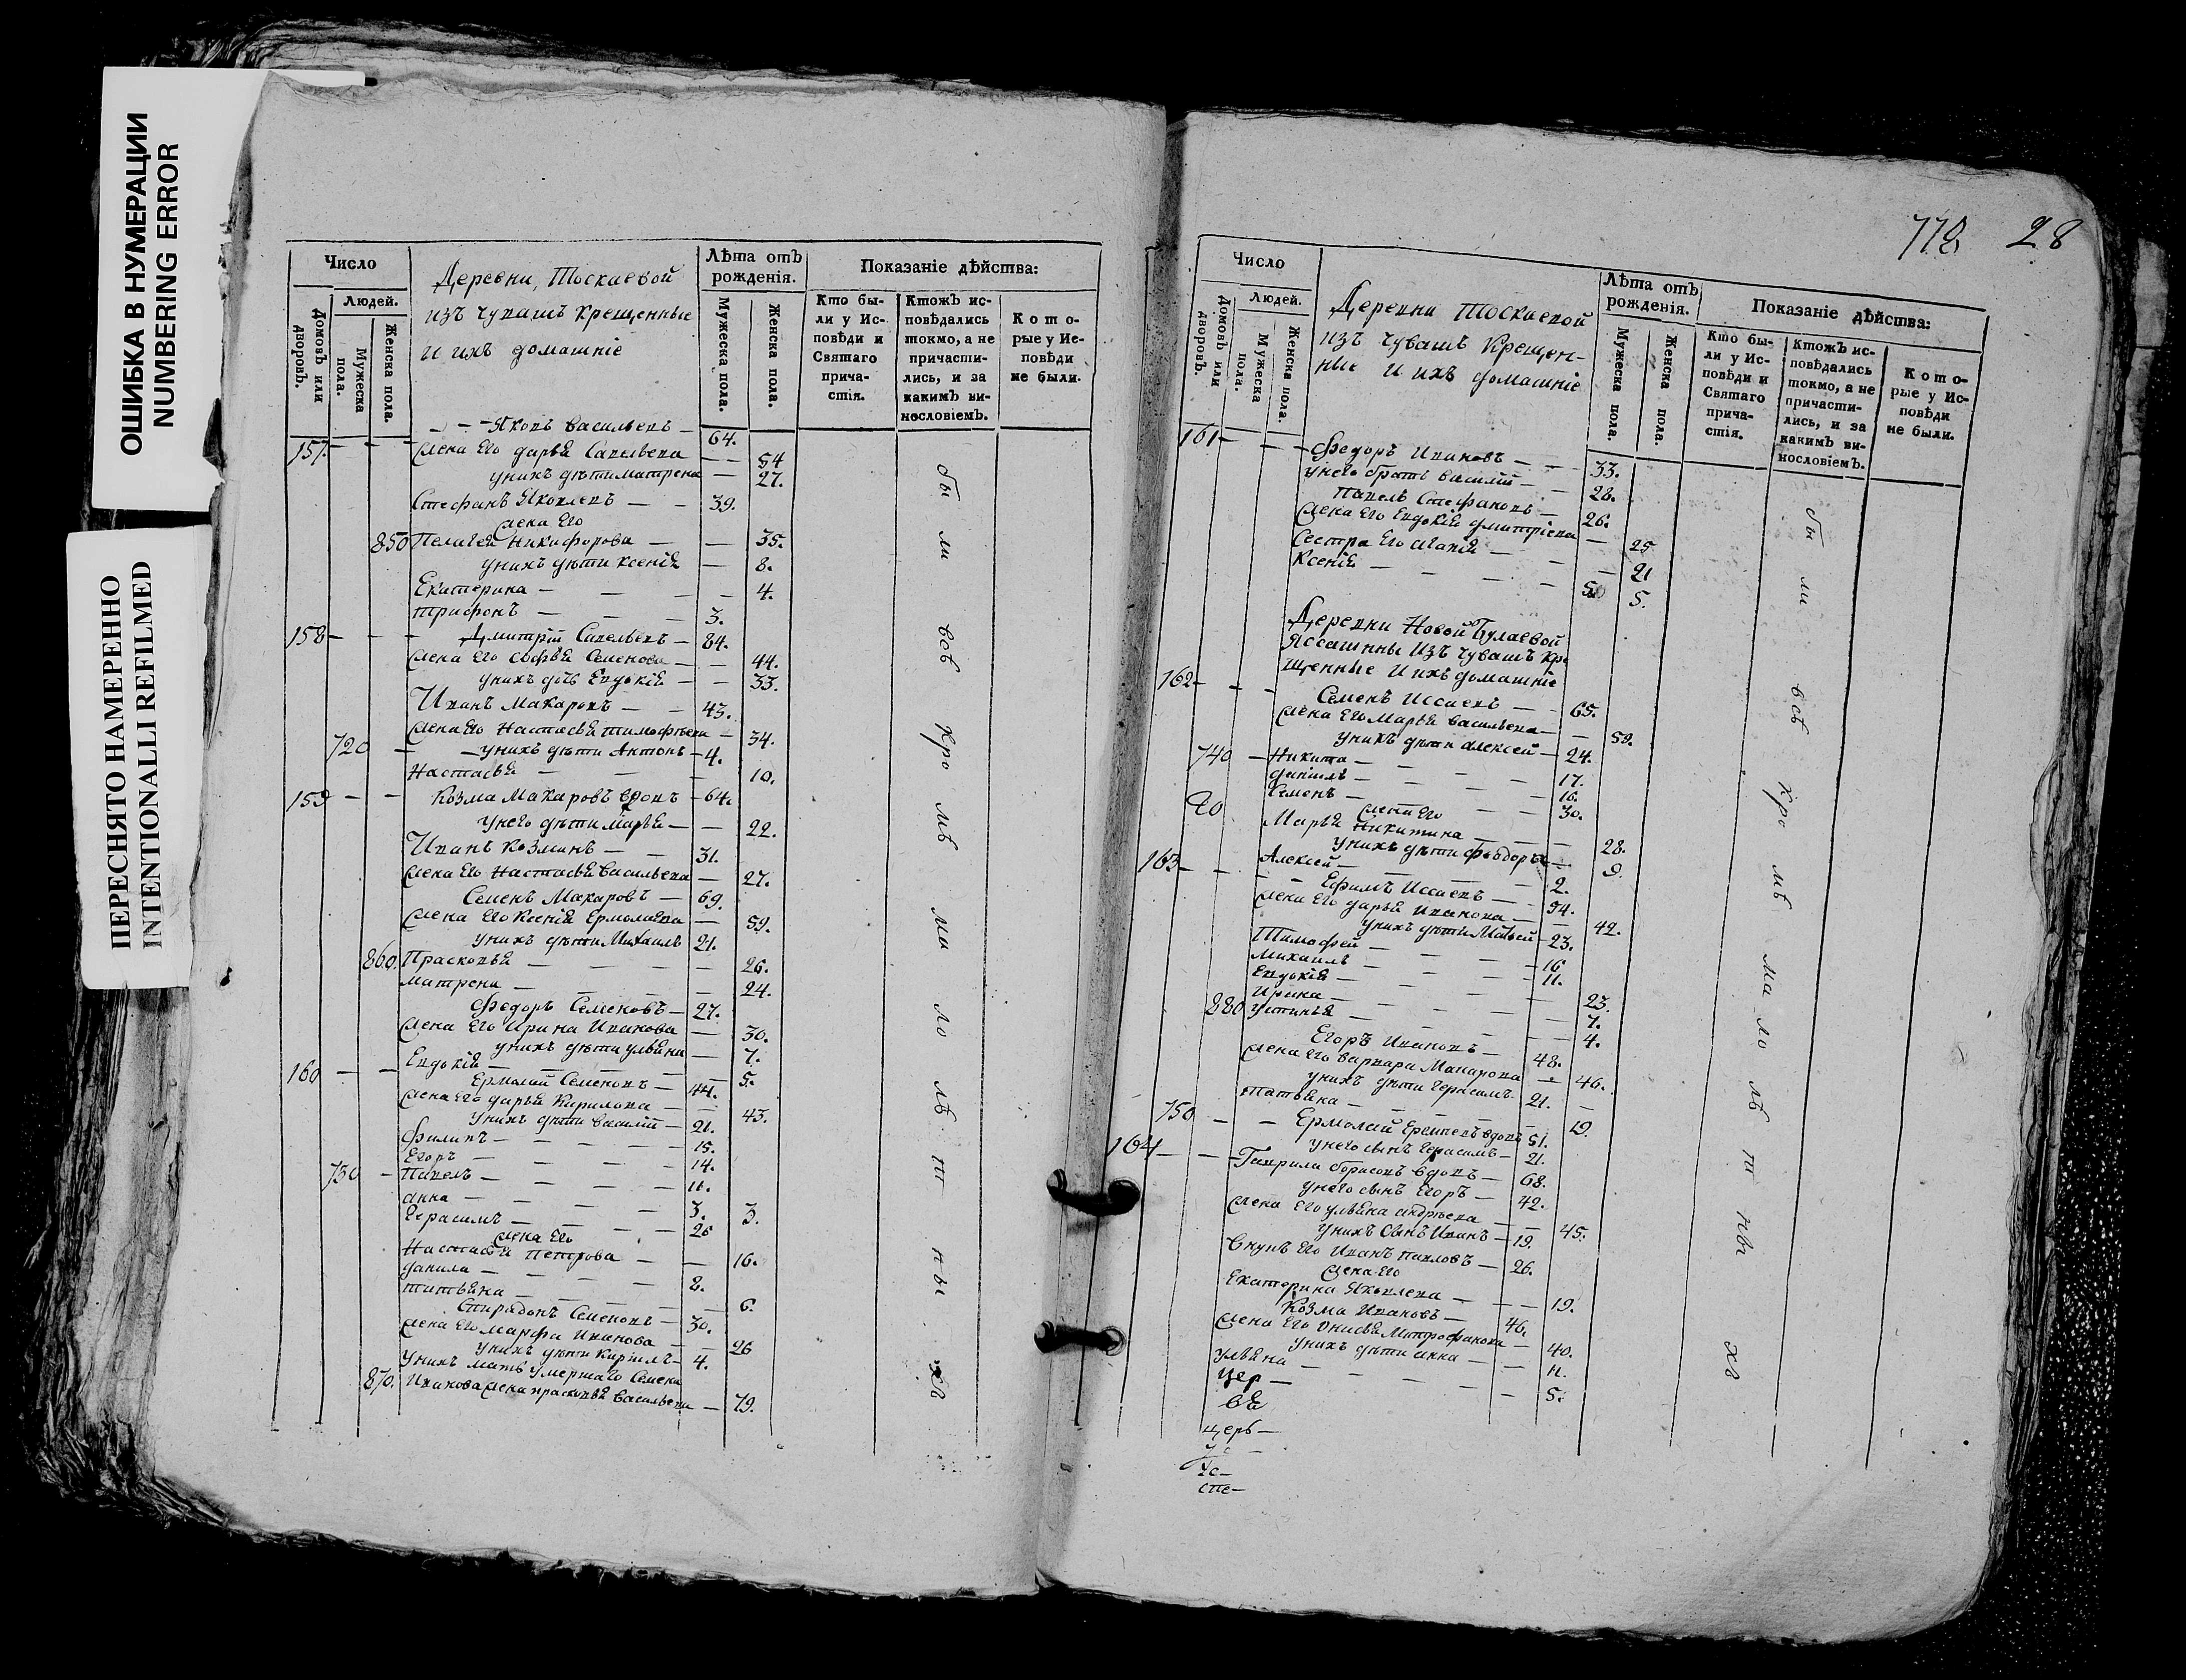 ОШИБКА В НУМЕРАЦИИ
NUMBERING ERROR
ПЕРЕСНЯТО НАМЕРЕННО
INTENTIONALLI REFILMED
Число
Людей.
Домовъ или дворовъ.
Мужеска пола.
Женска пола.
Деревни, Тоскаевой
изъ чувашъ крещенные
и ихъ домашніе
Лѣта отъ рожденія.
Мужеска пола.
Женска пола.
Показаніе дѣйства:
Кто были у Исповѣди и Святаго причастія.
Ктожъ исповѣдались токмо, а не причастились, и за какимъ винословіемъ.
Которые у Исповѣди не были.
157 Яковъ Васильевъ 64.
жена Его дарья Савельева 54
унихъ дѣти матрена 27.
Стефанъ Яковлевъ 39.
жена Его
850 Пелагея Никифорова 35.
унихъ дѣти Ксенія 8.
Екатерина 4.
трифонъ 3.
158 Дмитрій Савельевъ 84.
жена Его софья Семенова 44.
унихъ дочь Евдокія 33.
Иванъ Макаровъ 43.
жена Его Настасья тимофѣева 34.
720 унихъ дѣти Антонъ 4.
Настасья 10.
159 Козма Макаровъ вдовъ 64.
унего дѣти Марья 22.
Иванъ Козминъ 31.
жена Его Настасья Васильева 27.
Семенъ Макаровъ 69.
жена Его Ксенія Ермолаева 59.
унихъ дѣти Михаилъ 21.
860. Прасковья 26.
матрена 24.
Федоръ Семеновъ 27.
жена Его Ирина Иванова 30.
унихъ дѣти ульяна 7.
Евдокія 5.
160 Ермолай Семеновъ 44.
жена Его дарья Кирилова 43.
унихъ дѣти Василій 21.
Филипъ 15.
Егоръ 14.
730 Павелъ 11.
анна 3.
Герасимъ 3. 25
жена Его
Настасья Петрова 16.
данила 2.
татьяна 6.
Спиридонъ Семеновъ 30.
жена Его марфа Иванова 26
унихъ дѣти Кирилъ 4.
унихъ мать умершаго Семена
870. Иванова жена прасковья Васильева 79.
бы ли всѣ кро мѣ ма ло лѣ т ны хъ
778. 28
Число
Людей.
Домовъ или дворовъ.
Мужеска пола.
Женска пола.
Деревни Тоскаевой
изъ Чувашъ Крещен-
ные и ихъ домашніе
Лѣта отъ рожденія.
Мужеска пола.
Женска пола.
Показаніе дѣйства:
Кто были у Исповѣди и Святаго причастія.
Ктожъ исповѣдались токмо, а не причастились, и за какимъ винословіемъ.
Которые у Исповѣди не были.
161 Федоръ Ивановъ 33.
унего братъ василій 28.
Павелъ Стефановъ 26.
жена Его Евдокія дмитріева 25
Сестра Его агапія 21
Ксенія 5.
Деревни Новой Булаевой
Яссашны изъ чувашъ Кре
щенные и ихъ домашніе
162 Семенъ Иссаевъ 65.
жена Его Марья васильева 59.
унихъ дѣти алексей 24.
740 Никита 17.
даніилъ 16.
Семенъ 30.
жена Его
Марья Никитина 28.
унихъ дѣти федоръ 9.
Алексей 2.
163 Ефимъ Иссаевъ 54.
жена Его дарья Иванова 42.
унихъ дѣти Матвей 23.
Тимофей 16
михаилъ 11.
Евдокія 23.
Ирина 7.
880 Устинья 4.
Егоръ Ивановъ 48.
жена Его варвара Макарова 46.
унихъ дѣти Герасимъ 21.
татьяна 19.
750 Ермолай Еремеевъ вдовъ 51.
унего сынъ Герасимъ 21.
164 Гаврила борисовъ вдовъ 68.
унего сынъ Егоръ 42.
жена Его ульяна андрѣева 45.
унихъ Сынъ Иванъ 19.
внукъ Его Иванъ павловъ 26.
жена Его
Екатерина Яковлева 19.
Козма Ивановъ 46.
жена Его Онисья Митрофанова 40.
унихъ дѣти анна 11.
ульяна 5.
бы ли всѣ кро мѣ ма ло лѣ т ны хъ
цер
вя
церь
Ус
спе